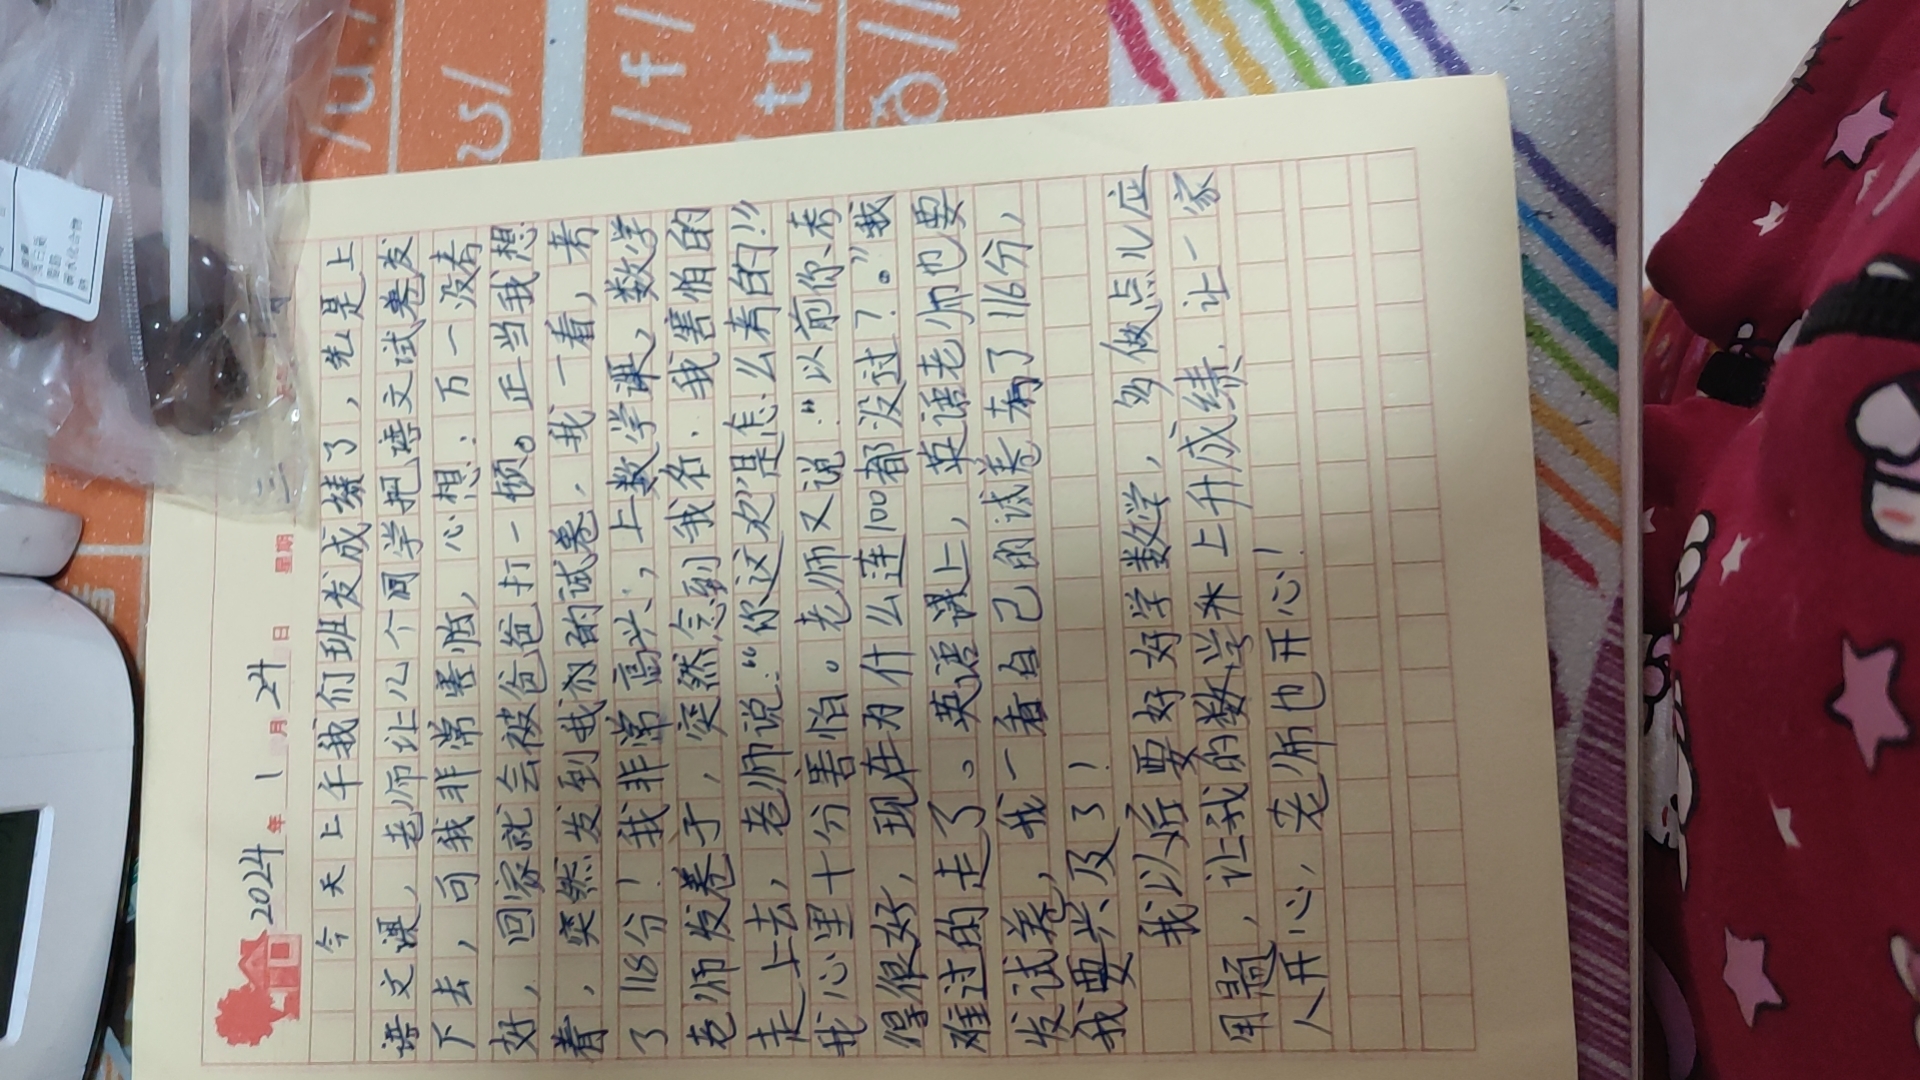 2024年1月24日 星期三
今天上午我们班发成绩了，先是上
语文课，老师让几个同学把语文试卷发
下去，可我非常害怕，心想：万一没考
好，回家就会被爸爸打一顿。正当我想
着，突然发到我的试卷，我一看，考
了118分！我非常高兴，上数学课，数学
老师发卷子，突然念到我名．我害怕的
走上去，老师说：“你这次是怎么考的!!”
我心里十分害怕。老师又说：“以前你考
得很好，现在为什么连100都没过？。”我
难过的走了。英语课上，英语老师也要
发试卷，我一看自己的试卷考了116分，
我要兴及了！
我以后要好好学数学，多做点儿应
用题，让我的数学来上升成绩．让一家
人开心，老师也开心！
/u:/
/ʊ/
/f/
tr/